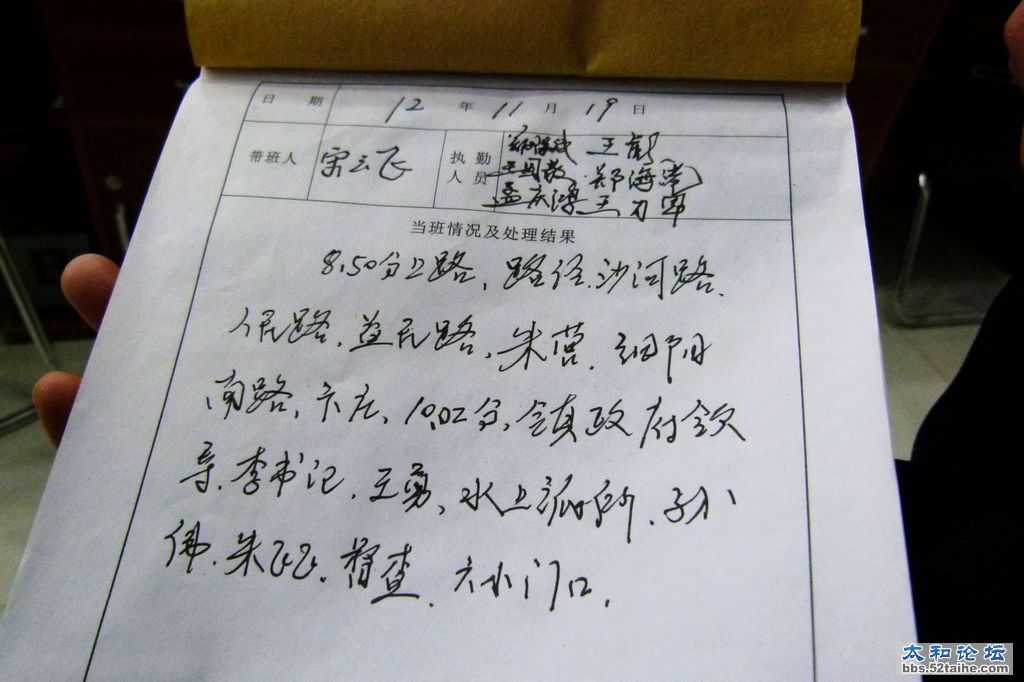 日 期 12 年 11 月 19 日
带班人 宋云飞 执勤人员 王彪
郑海
孟庆 王力军
当班情况及处理结果
8.50分上路、路径.沙河路、
人民路、益民路、朱营、细阳
南路、卞庄、10.02分、镇政府领
导.李书记、王勇、水上派出所、孙小
伟、朱飞飞、督查、六小门口.
太和论坛
bbs.52taihe.com